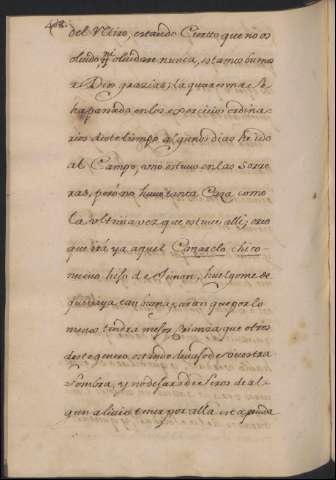 408.
del Vtro, estando Cierto que no os
oluido ni oluidare nunca, estamos buenos
a Dios gracias; la quaresma se
ha pasado en los exercicios ordina
rios deste tiempo algunos dias he ido
al Campo, uno estuue en las
pero no huuo tanta Caza como
la vltima vez que estuue alli; creo
que irá ya aquel Camarelo chico
nueuo hijo de Juan, huelgome de
que por lo
menos tendra mejor que otros
deste genero estando debajo de vuestra
sombra, y no dejara de seros de al
gun aliuio tener por alla esta ayuda